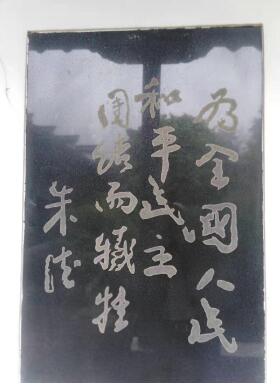 为全国人民
和平民主
团结而牺牲
朱德